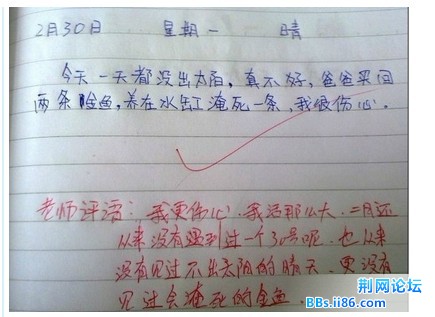 2月30日 星期一 晴
今天一天都没出太阳,真不好,爸爸买回
两条金鱼,养在水缸淹死一条,我很伤心。
老师评语:我更伤心。我活那么大,二月还
从来没有遇到过一个30号呢,也从来
没有见过不出太阳的晴天,更没有
见过会淹死的金鱼
荆网论坛
BBs.ii86.com